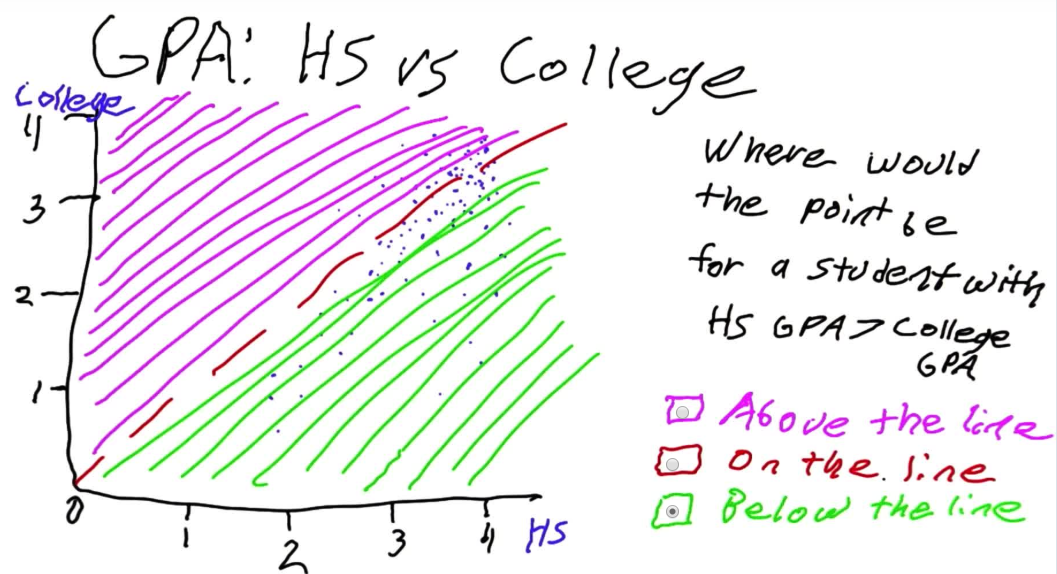 GPA: HS vs College
College
4
3
2
1
0
1
2
3
4
HS
Where would
the point be
for a student with
HS GPA > College
GPA
Above the line
On the line
Below the line